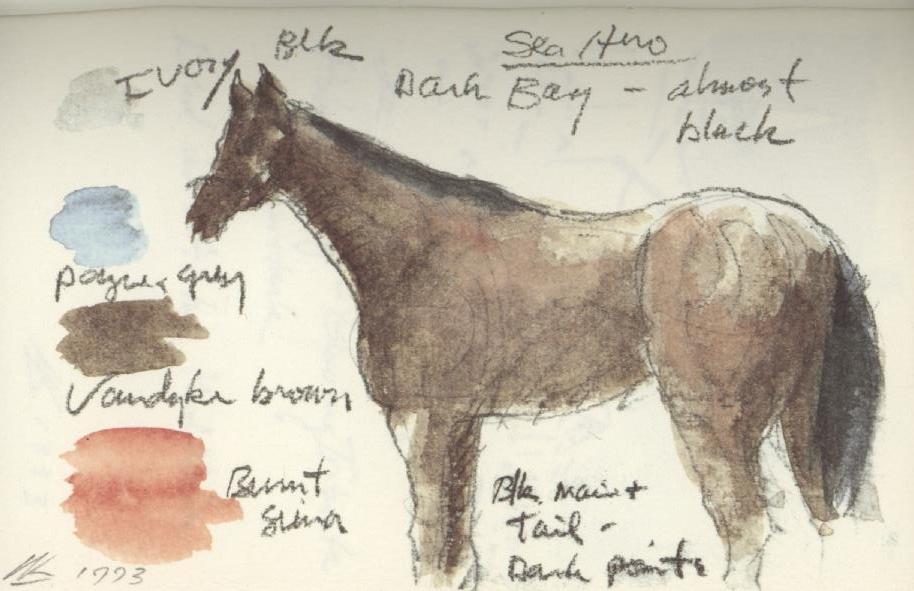 Ivory Blk
Sea Hero
Dark Bay - almost
black
payne's grey
Vandyke brown
Burnt
Siena
Blk Main +
Tail -
Dark points
1993